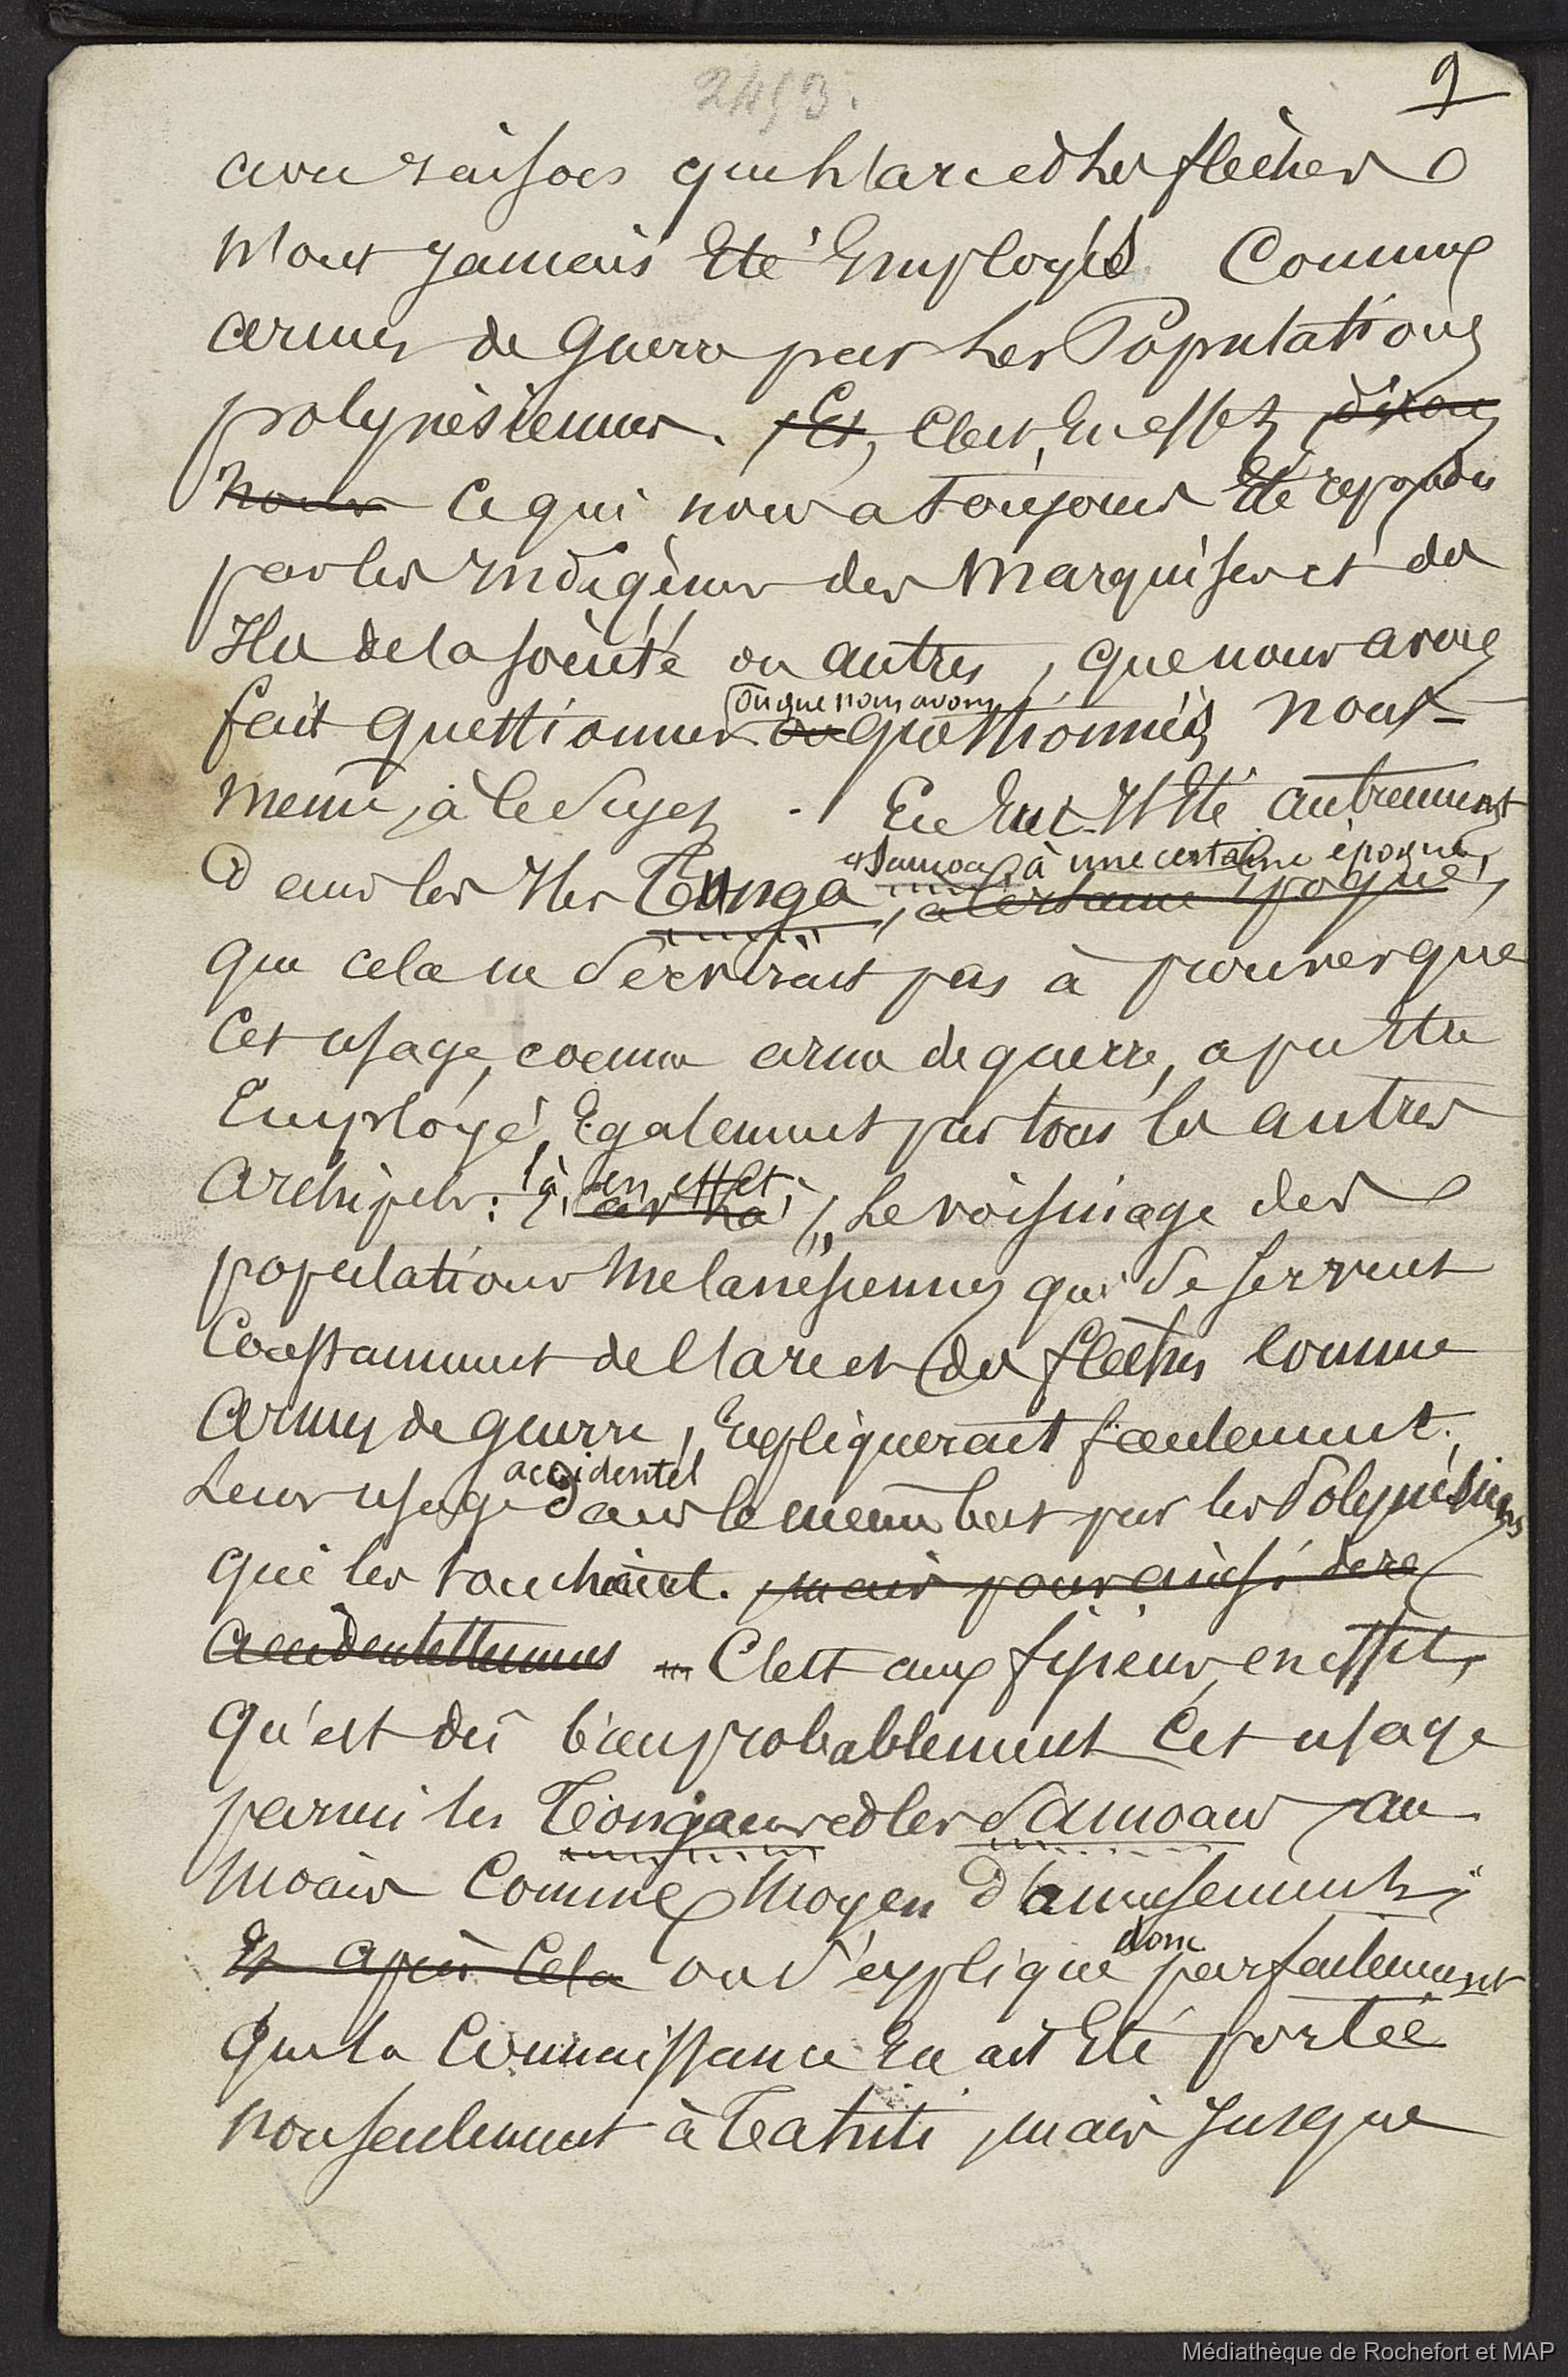 2453.
9
avec raison que l'arc et les flèches
n'ont jamais été employés comme
armes de guerre par les Populations
polynésiennes. Et, C'est, en effet, disons
nous ce qui nous a toujours été répondu
par les indigènes des Marquises et des
Iles de la Société ou autres, que nous avons
ou que nous avons
fait questionner ou questionnés nous
meme, à ce Sujet. En eut-il été autrement
et Samoa, à une certaine époque,
dans les Iles Tonga, à certaine époque,
que cela ne servirait pas à prouver que
cet usage, comme arme de guerre, a pu être
employé également par tous les autres
là en effet,
archipels: car là, le voisinage des
populations Mélanésiennes qui se servent
constamment de l'arc et des flèches comme
armes de guerre, expliquerait facilement
accidentel
leur usage dans le même but par les Polynésiens
qui les touchaient. mais pour ainsi dire
accidentellement C'est aux fijiens, en effet,
qu'est dû bien probablement cet usage
parmi les Tongans et les Samoans au
moins comme moyen d'amusement;
donc
Et après cela on s'explique parfaitement
que la connaissance en ait été portée
non seulement à Tahiti, mais jusque
Médiathèque de Rochefort et MAP